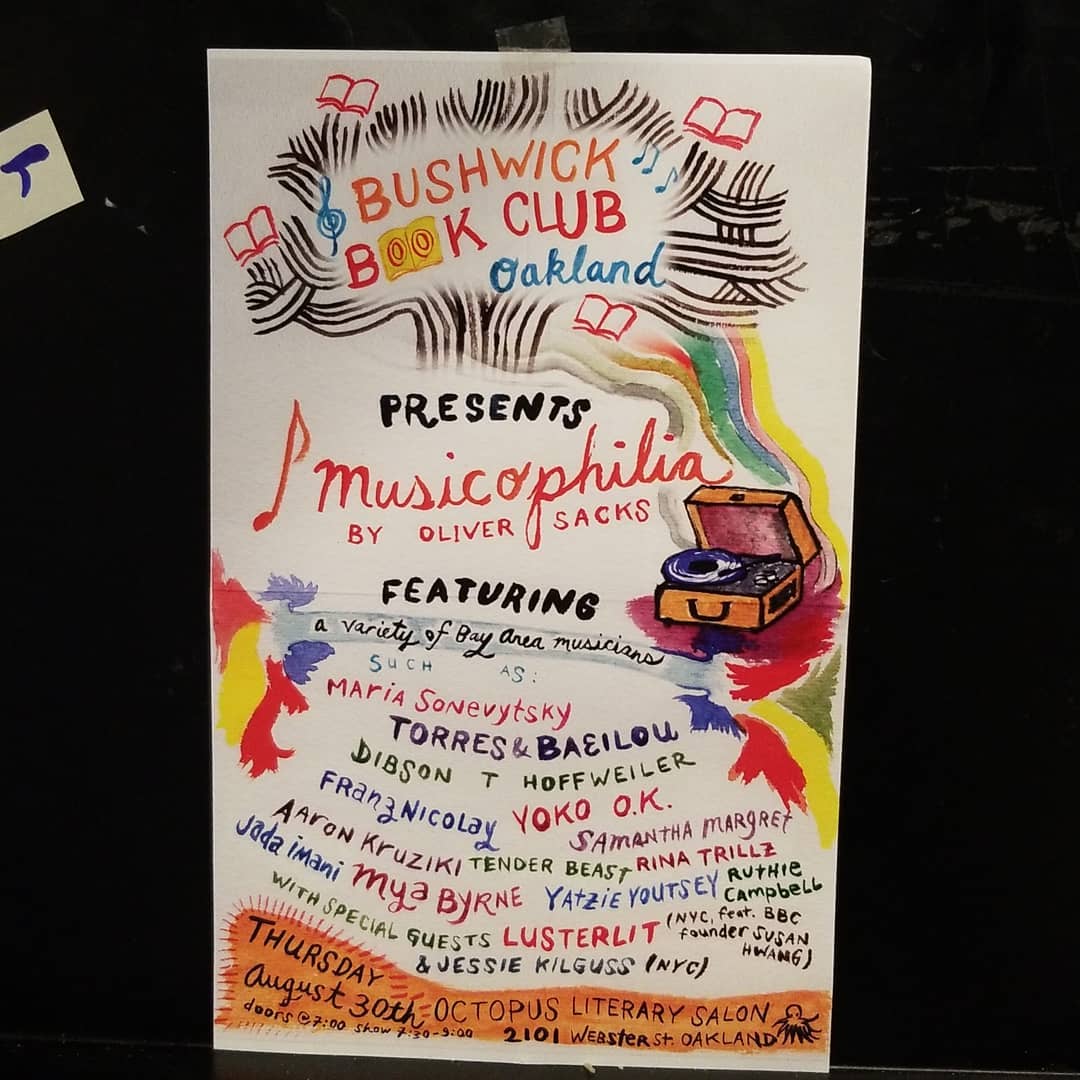 T
BUSHWICK
BOOK CLUB
Oakland
PRESENTS
musicophilia
BY OLIVER SACKS
FEATURING
a variety of Bay Area musicians
SUCH AS:
MARIA SONEVYTSKY
TORRES & BAEILOU
DIBSON T HOFFWEILER
FRANZ NICOLAY YOKO O.K.
SAMANTHA MARGRET
AARON KRUZIKI TENDER BEAST RINA TRILLZ
Jada imani Mya BYRNE YATZIE YOUTSEY RUTHIE CAMPBELL
WITH SPECIAL GUESTS LUSTERLIT (NYC, feat. BBC founder SUSAN HWANG)
& JESSIE KILGUSS (NYC)
THURSDAY
August 30th
doors @ 7:00 show 7:30-9:00
OCTOPUS LITERARY SALON
2101 WEBSTER St. OAKLAND